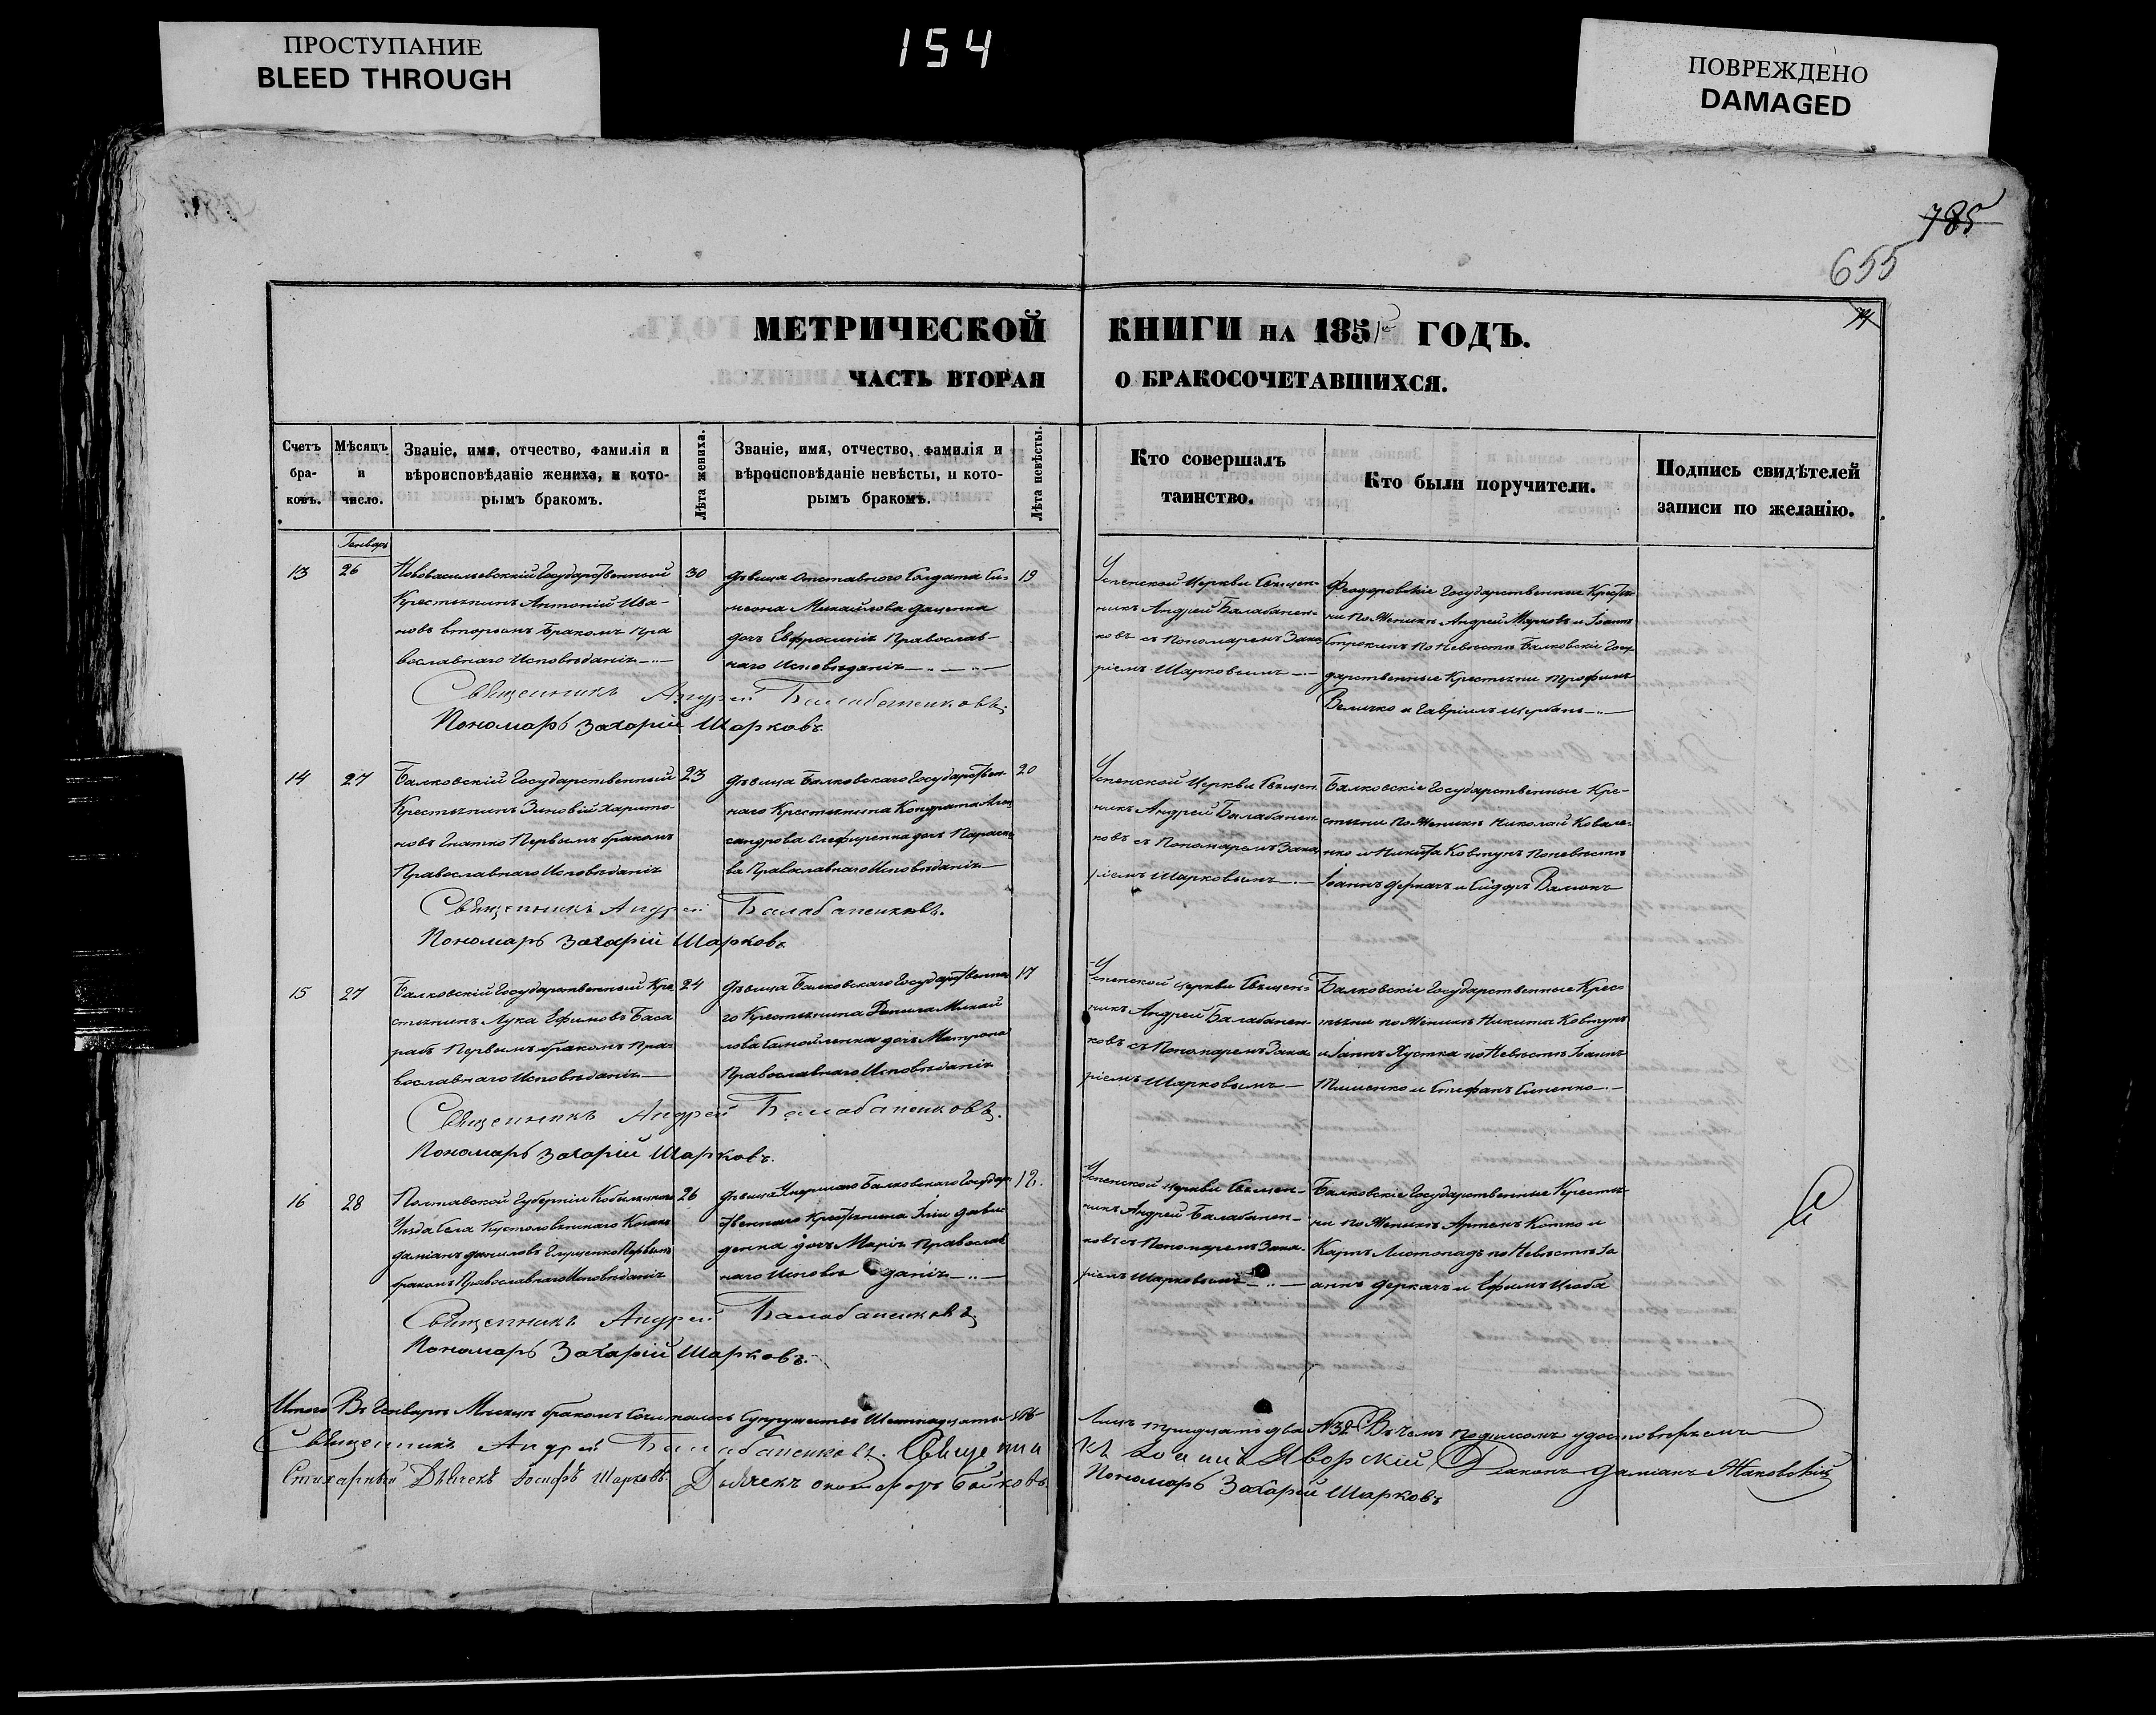 ПРОСТУПАНИЕ
BLEED THROUGH
154
ПОВРЕЖДЕНО
DAMAGED
785
655
МЕТРИЧЕСКОЙ КНИГИ НА 1851 ГОДЪ.
ЧАСТЬ ВТОРАЯ О БРАКОСОЧЕТАВШИХСЯ.
Счетъ бра-ковъ.
Мѣсяцъ и число.
Званіе, имя, отчество, фамилія и
вѣроисповѣданіе жениха, и кото-
рымъ бракомъ.
Лѣта жениха.
Званіе, имя, отчество, фамилія и
вѣроисповѣданіе невѣсты, и кото-
рымъ бракомъ.
Лѣта невѣсты.
Кто совершалъ
таинство.
Кто были поручители.
Подпись свидѣтелей
записи по желанію.
Генварь
13
26
Нововасильевскій Государственный
Крестьянинъ Антоній Ива-
новъ вторымъ бракомъ пра
вославнаго Исповѣданія
30
Дѣвица отставного Солдата Си-
меона Михайлова Даценка
дочь Евфросинія Православ-
наго Исповѣданія
19
Успенской Церкви Священ-
никъ Андрей Балабанен-
ковъ съ Пономаремъ Заха
ріемъ Шарковымъ
Феодоровскіе Государственные Крестья
ни по Женихѣ Андрей Марковъ и Іоаннъ
по Невѣстѣ Балковскіе Госу
дарственные Крестьяни Трофимъ
Величко и Гавріилъ Щербань
Священникъ Андрей Балабаненковъ
Пономарь Захарій Шарковъ
14
27
Балковскій Государственный
Крестьянинъ Зиновій Харито-
новъ Гнатко Первымъ бракомъ
Православнаго Исповѣданія
23
Дѣвица Балковскаго Государствен
наго Крестьянина Кондрата Алек
сандрова дочь Параске
ва Православнаго Исповѣданія
20
Успенской Церкви Священ
никъ Андрей Балабанен
ковъ съ Пономаремъ Заха
ріемъ Шарковымъ
Балковскіе Государственные Кре-
стьяни по Женихѣ Николай Ковале-
нко и Никита Ковтунъ по невѣстѣ
Іоаннъ Деркачъ и Сидоръ
Священникъ Андрей Балабаненковъ.
Пономарь Захарій Шарковъ
15
27
Балковскій Государственный Кре
стьянинъ Лука Ефимовъ Баса
рабъ Первымъ бракомъ Пра-
вославнаго Исповѣданія
24
Дѣвица Балковскаго Государственна
го Крестьянина Данила Михай
лова Самойленка дочь Матрона
Православнаго Исповѣданія
17
Успенской Церкви Священ-
никъ Андрей Балабанен-
ковъ съ Пономаремъ Заха
ріемъ Шарковымъ
Балковскіе Государственные Крес
тьяни по Женихѣ Никита Ковтунъ
и Іоаннъ Хустка по Невѣстѣ Іоаннъ
Тимченко и Стефанъ Синенко
Священникъ Андрей Балабаненковъ.
Пономарь Захарій Шарковъ.
16
28
Полтавской Губерніи Кобеляцкаго
Уѣзда Села Козакъ
Даміанъ Даниловъ Глущенко Первымъ
бракомъ Православнаго Исповѣданія
26
Дѣвица Умершаго Балковскаго Государ
ственнаго Крестьянина Иліи Дави-
денка дочь Марія Православ
наго Исповѣданія
18.
Успенской Церкви Священ-
никъ Андрей Балабанен-
ковъ съ Пономаремъ Заха-
ріемъ Шарковымъ
Балковскіе Государственные Крестья
ни по Женихѣ Артемъ Котко и
Карпъ Листопадъ по Невѣстѣ Іо
аннъ Деркачъ и Ефимъ
Священникъ Андрей Балабаненковъ
Пономарь Захарій Шарковъ.
Итого Въ Генварѣ Мѣсяцѣ бракомъ Сочеталось Супружествъ Шестнадцать №16 Лицъ тридцать два №32. Въ чемъ подписомъ удостовѣряемъ
Священникъ Андрей Балабаненковъ. Священникъ Іоаннъ Яворскій Діаконъ Даміанъ Маковскій
Стихарный Дьячекъ Іосифъ Шарковъ. Дьячекъ Бойковъ. Пономарь Захарій Шарковъ